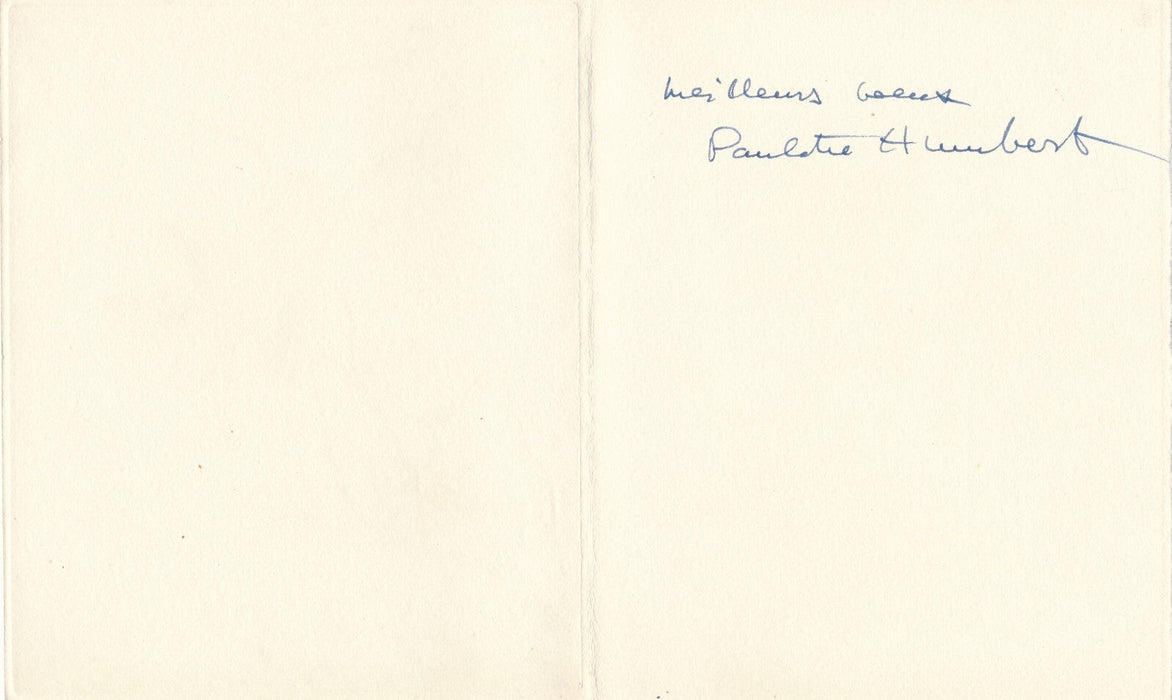 meilleurs voeux
Paulette Humbert